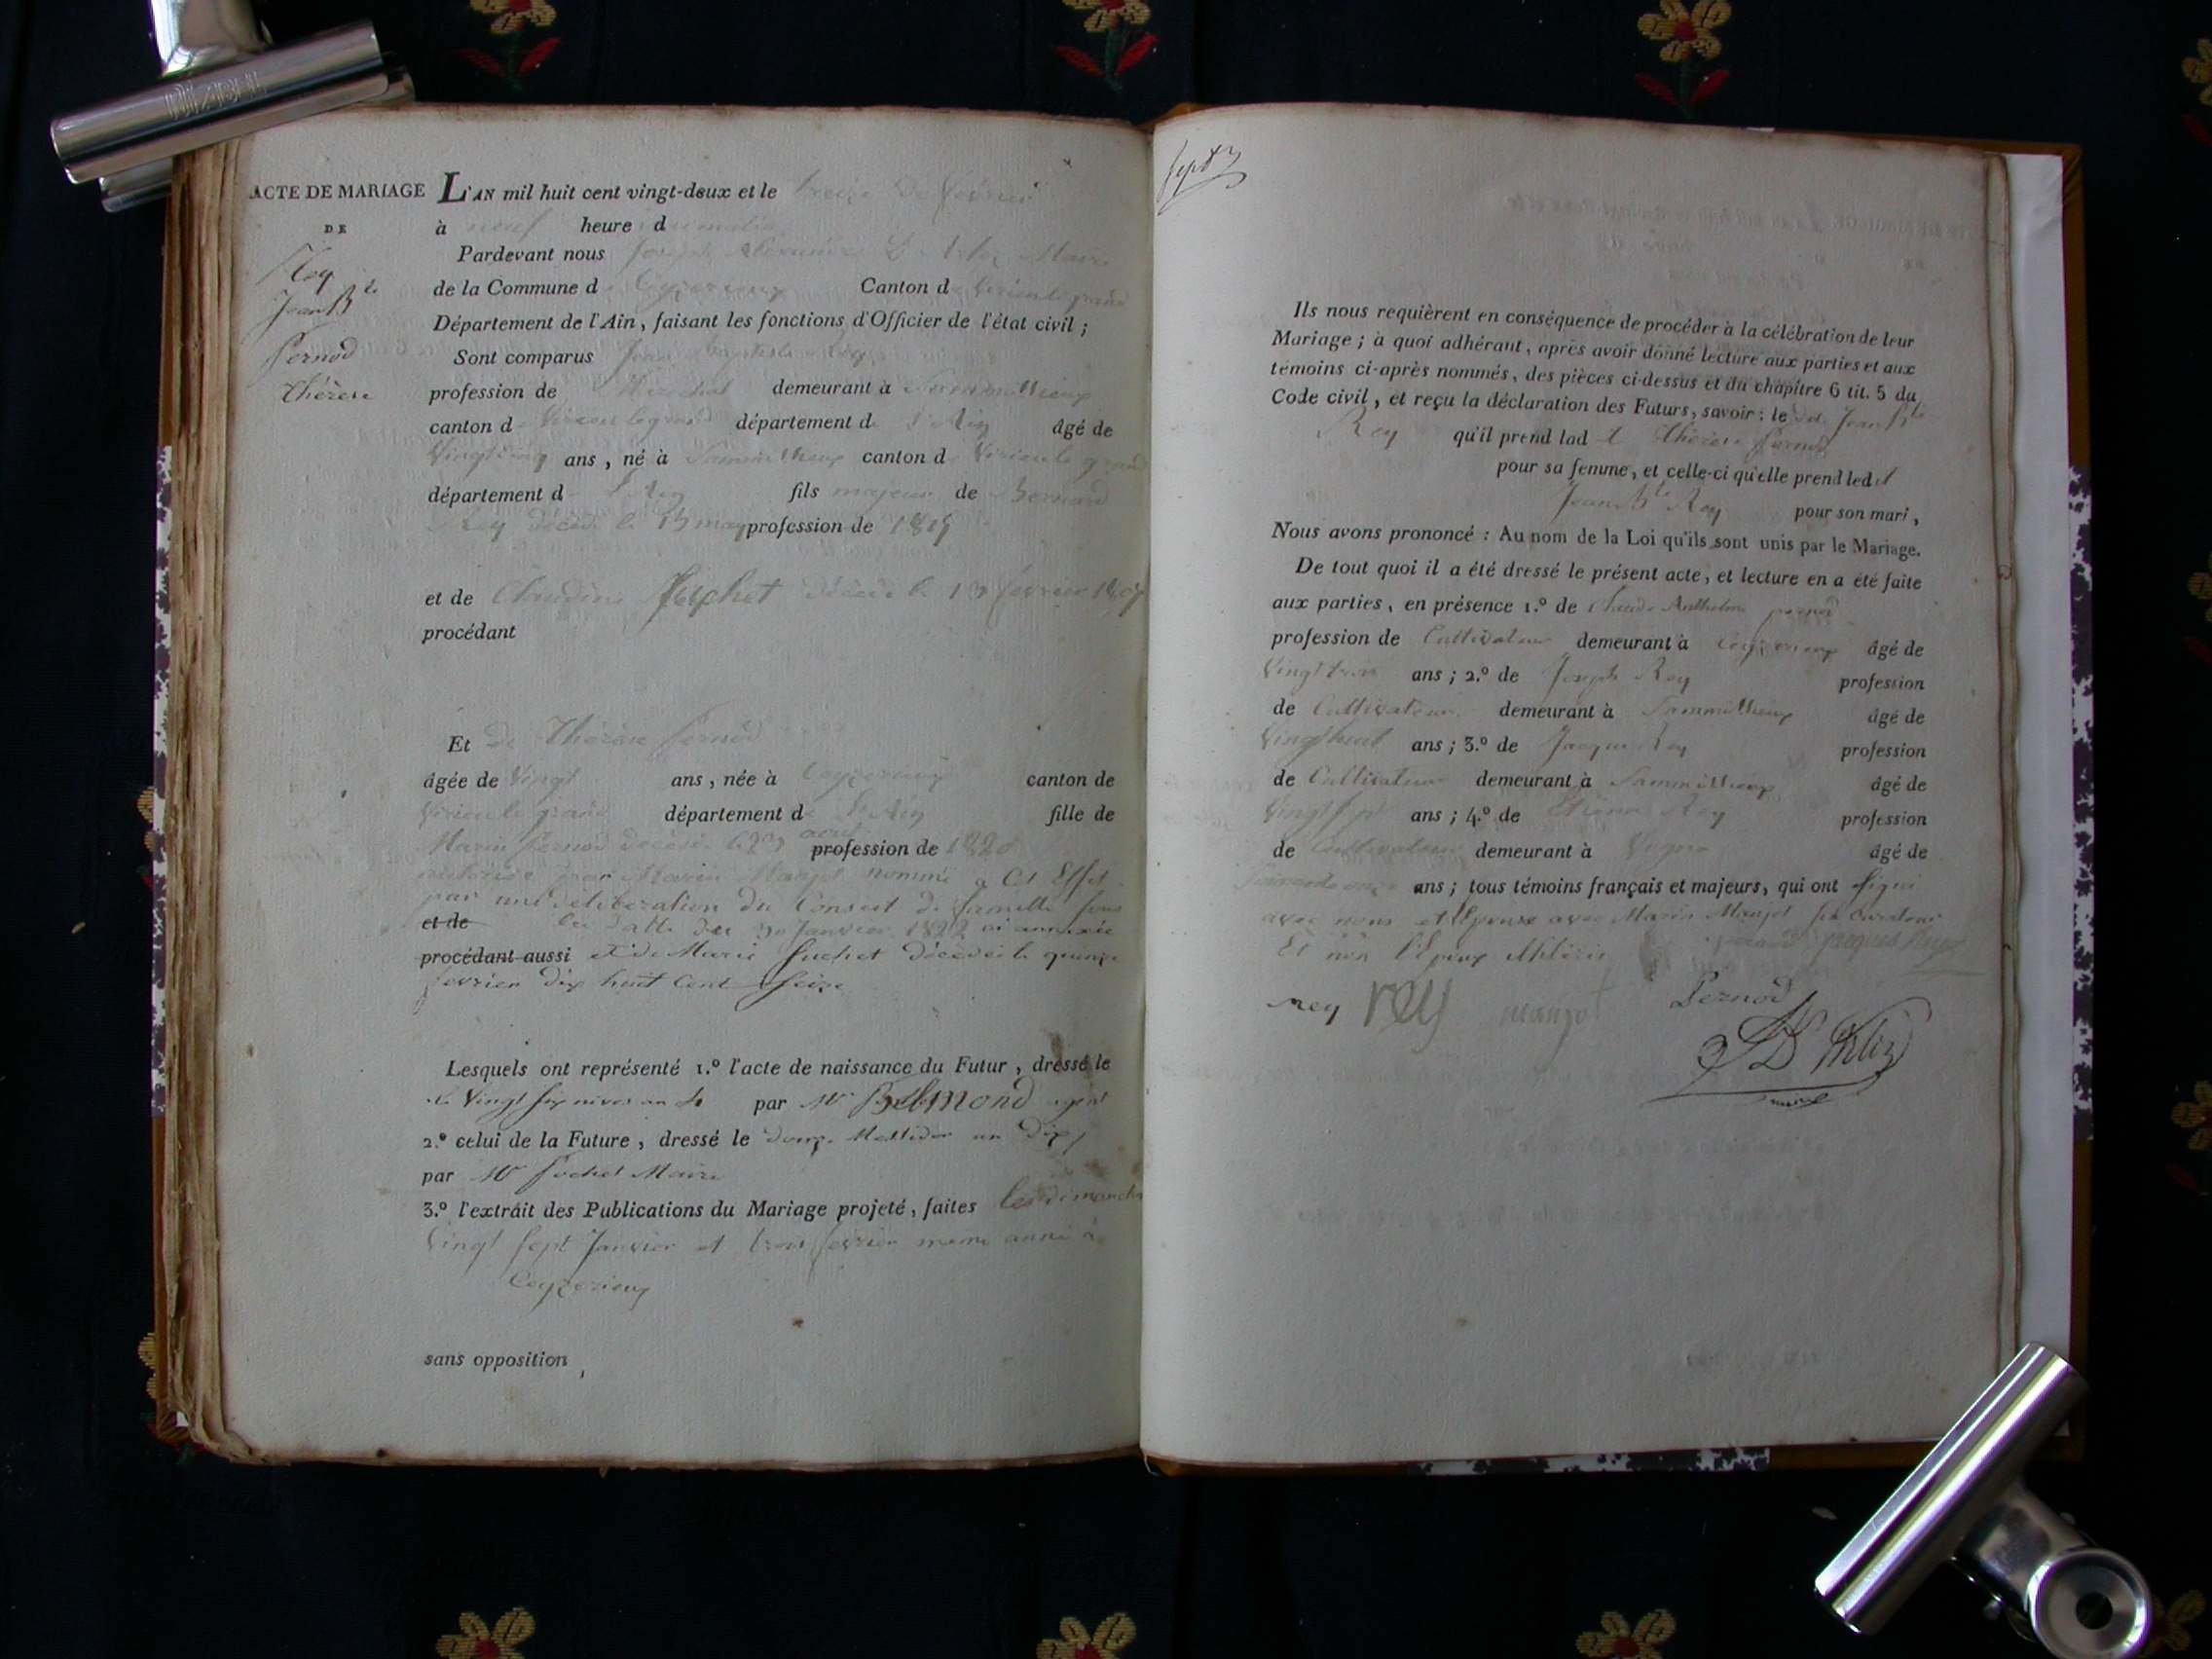 ACTE DE MARIAGE
DE
Rey
Jean Bte
Pernod
Thérèse
L'AN mil huit cent vingt-deux et le treize de février
à neuf heure d du matin
Pardevant nous Joseph Maire
de la Commune d Ceyzerieux Canton d Virieu le grand
Département de l'Ain, faisant les fonctions d'Officier de l'état civil;
Sont comparus Jean Baptiste Rey
profession de demeurant à
canton d Virieu le grand département d l'Ain âgé de
Vingt cinq ans, né à canton d Virieu le grand
département d l'Ain fils majeur de Bernard
Rey décédé le 15 may profession de
et de Claudine fuchet décédé le février
procédant
Et de Thérèse Pernod
âgée de Vingt ans, née à Ceyzerieux canton de
Virieu le grand département d l'Ain fille de
Marin Pernod décédé le 23 avril profession de 1820
autorisée par Marin Manjot nommé a Cet Effet
par une déliberation du Conseil de famille sous
et de la datte du 30 Janvier 1822 ci annexée
procédant aussi et de Marie fuchet décédée le quinze
fevrier dix huit Cent Seize
Lesquels ont représenté 1.º l'acte de naissance du Futur, dressé le
le Vingt six nivos an 4 par Mr Belmond agent
2.º celui de la Future, dressé le douze Messidor an dix
par Mr fuchet Maire
3.º l'extrait des Publications du Mariage projeté, faites les dimanche
Vingt sept Janvier et trois fevrier meme année à
Ceyzerieux
sans opposition,
sept
Ils nous requièrent en conséquence de procéder à la célébration de leur
Mariage; à quoi adhérant, après avoir donné lecture aux parties et aux
témoins ci-après nommés, des pièces ci-dessus et du chapitre 6 tit. 5 du
Code civil, et reçu la déclaration des Futurs, savoir: le dit Jean Bte
Rey qu'il prend lad te Thérèse Pernod
pour sa femme, et celle-ci qu'elle prend led t
Jean Bte Rey pour son mari,
Nous avons prononcé: Au nom de la Loi qu'ils sont unis par le Mariage.
De tout quoi il a été dressé le présent acte, et lecture en a été faite
aux parties, en présence 1.º de Claude Anthelme pernod
profession de Cultivateur demeurant à Ceyzerieux âgé de
Vingt trois ans; 2.º de Joseph Rey profession
de Cultivateur demeurant à âgé de
Vingt huit ans; 3.º de Jacque Rey profession
de Cultivateur demeurant à âgé de
Vingt ans; 4.º de Rey profession
de Cultivateur demeurant à âgé de
ans; tous témoins français et majeurs, qui ont signé
avec nous et l'Epouse avec Marin Manjot son curateur
Et non l'Epoux
rey rey manjot Pernod
maire